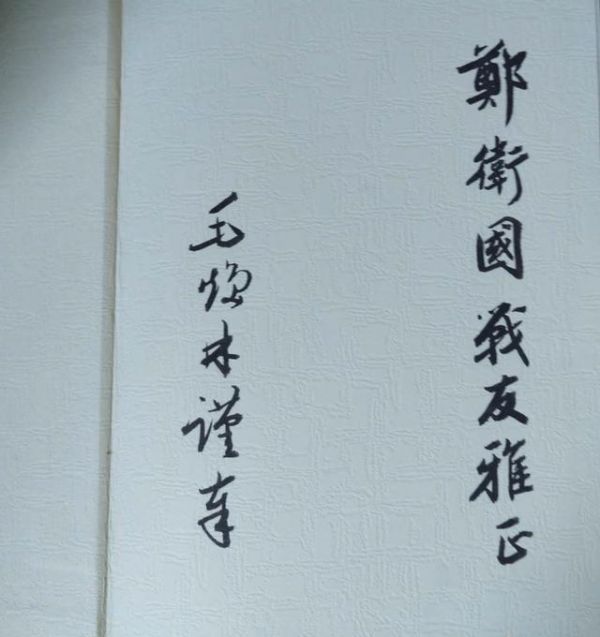 鄭衛國戰友雅正
毛 木謹奉